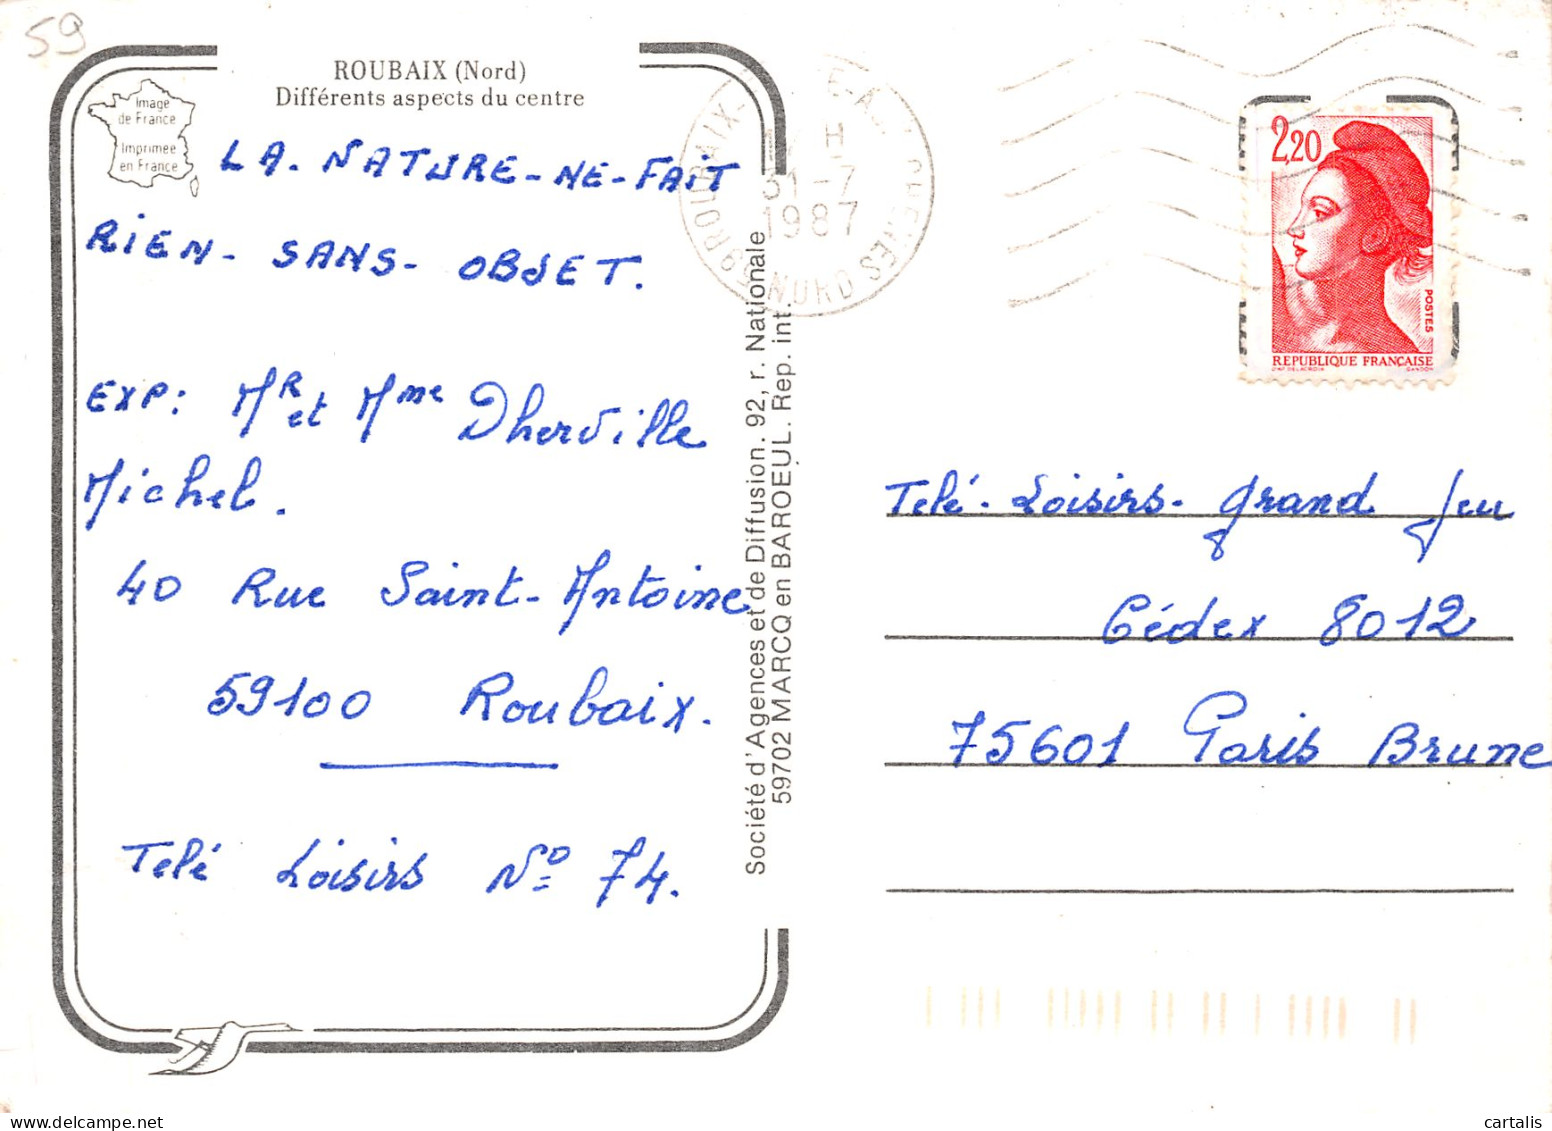 59
ROUBAIX (Nord)
Différents aspects du centre
Image
de France
Imprimée
en France
LA. NATURE-NE-FAiT
RiEN- SANS- OBJET.
EXP: Mr et Mme Dherville
Michel.
40 Rue Saint-Antoine
59100 Roubaix.
Telé Loisirs No 74.
Société d'Agences et de Diffusion. 92, r. Nationale
59702 MARCQ en BAROEUL. Rep. int.
59 ROUBAIX-
H
31-7
1987
NORD
2,20
POSTES
REPUBLIQUE FRANÇAISE
D'AP. DELACROIX GANDON
Telé-Loisirs-grand Jeu
Cédex 8012
75601 Paris Brune
cartalis